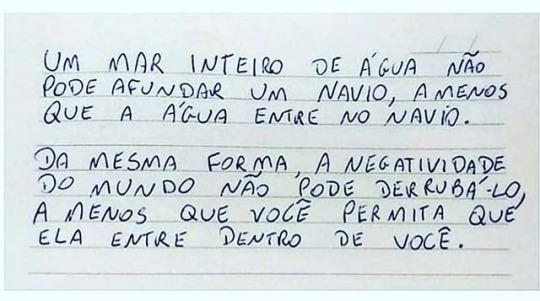 UM MAR INTEIRO DE ÁGUA NÃO
PODE AFUNDAR UM NAVIO, A MENOS
QUE A ÁGUA ENTRE NO NAVIO.
DA MESMA FORMA, A NEGATIVIDADE
DO MUNDO NÃO PODE DERRUBÁ-LO,
A MENOS QUE VOCÊ PERMITA QUE
ELA ENTRE DENTRO DE VOCÊ.